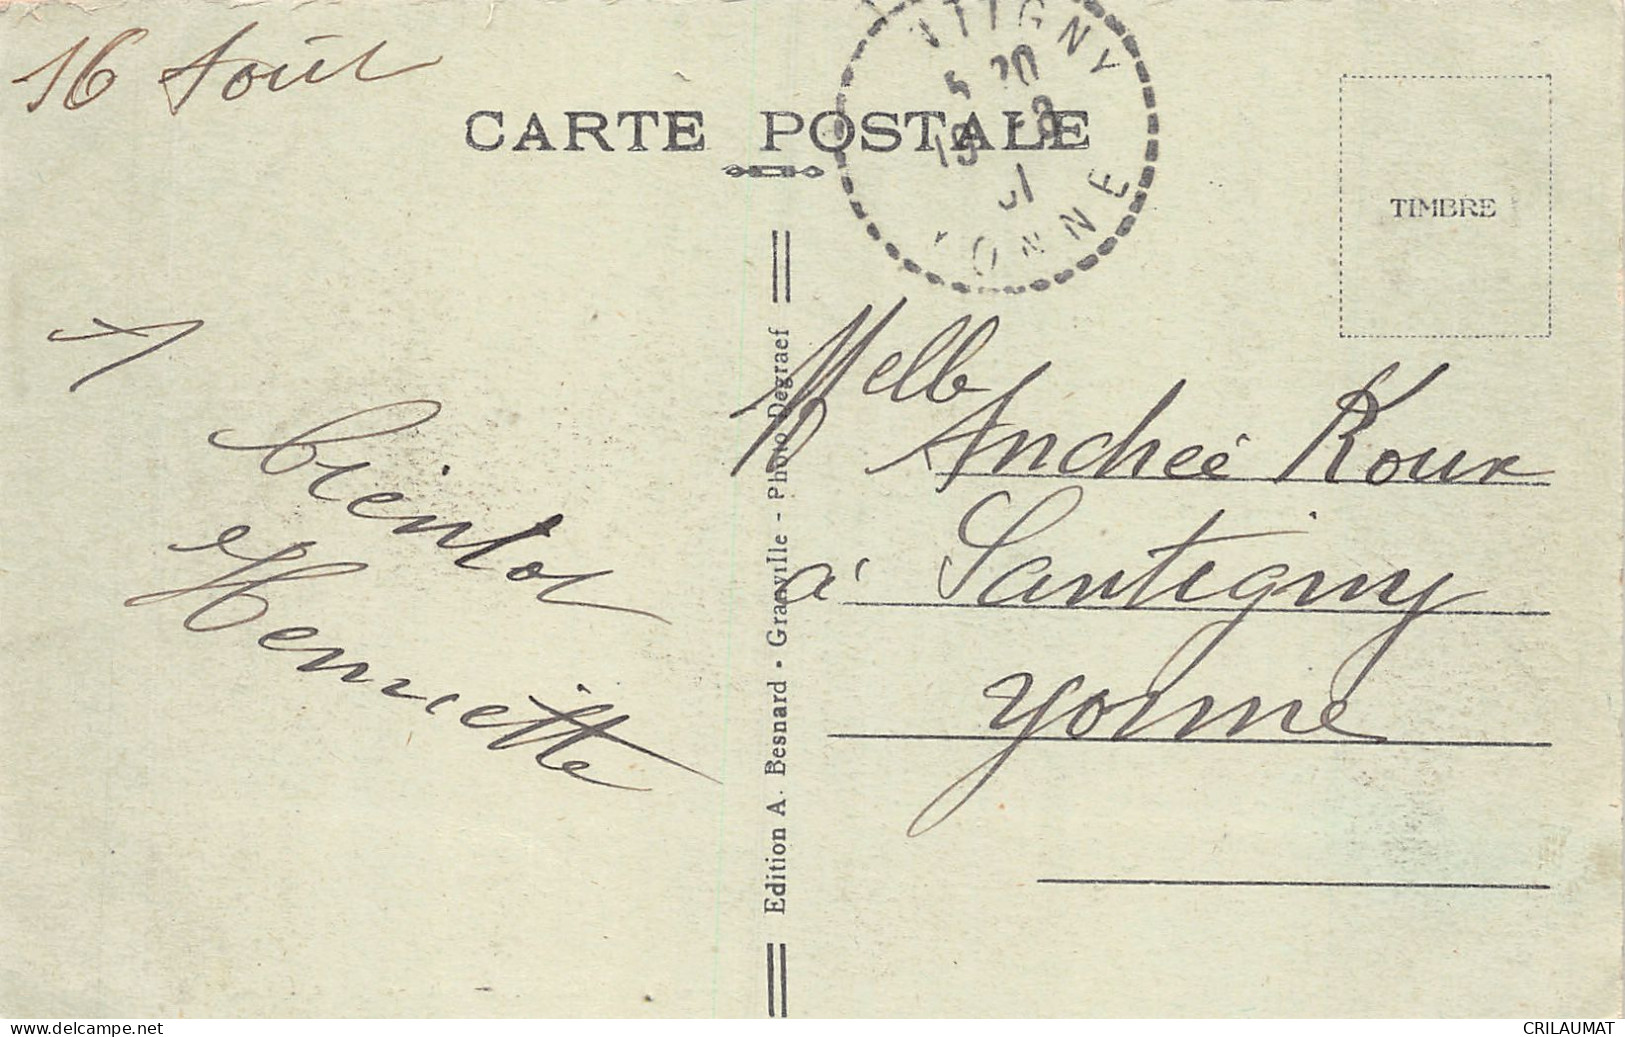 16 Août
CARTE POSTALE
TIGNY
20
19 -8
31
YONNE
TIMBRE
A
bientot
Henriette
Edition A. Besnard - Granville - Photo Degraef
Melle
Andrée Roux
à Santigny
Yonne
www.delcampe.net
CRILAUMAT